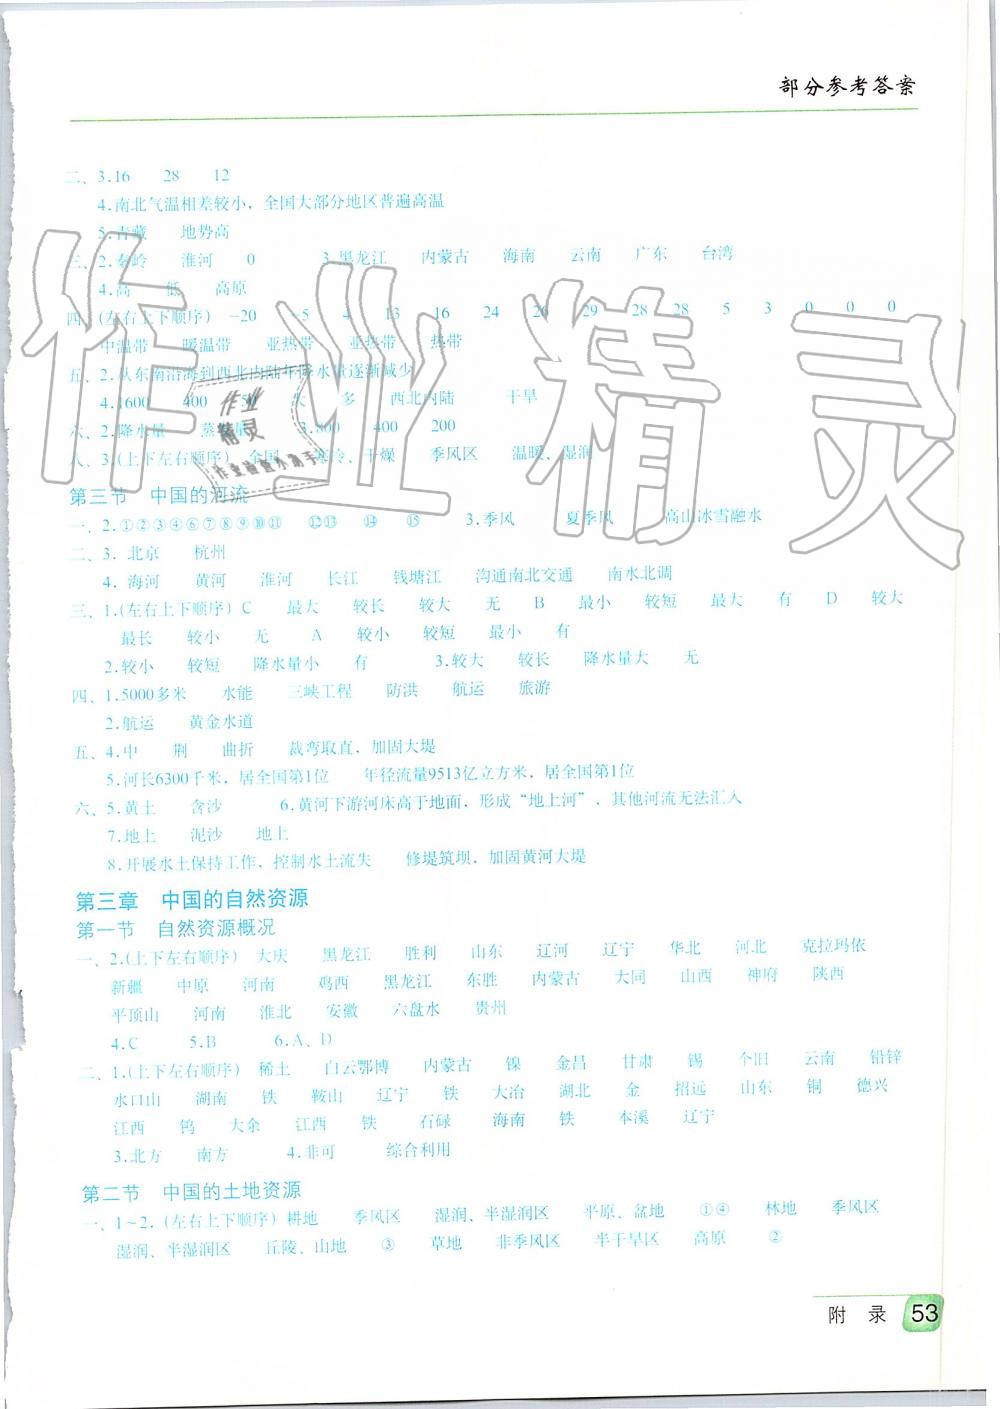 部分参考答案
二、3.16 28 12
4.南北气温相差较小，全国大部分地区普遍高温
5.青藏 地势高
三、2.秦岭 淮河 0 3.黑龙江 内蒙古 海南 云南 广东 台湾
4.高 低 高原
四、(左右上下顺序) -20 -5 4 13 16 24 26 29 28 28 5 3 0 0 0
中温带 暖温带 亚热带 亚热带 热带
五、2.从东南沿海到西北内陆年降水量逐渐减少
4.1600 400 50 大 多 西北内陆 干旱
六、2.降水量 蒸 量 3.800 400 200
八、3.(上下左右顺序) 全国 寒冷、干燥 季风区 温暖、湿润
第三节 中国的河流
一、2.①②③④⑤⑥⑦⑧⑨⑩⑪ ⑫⑬ ⑭ ⑮ 3.季风 夏季风 高山冰雪融水
二、3. 北京 杭州
4. 海河 黄河 淮河 长江 钱塘江 沟通南北交通 南水北调
三、1.(左右上下顺序) C 最大 较长 较大 无 B 最小 较短 最大 有 D 较大
最长 较小 无 A 较小 较短 最小 有
2.较小 较短 降水量小 有 3.较大 较长 降水量大 无
四、1.5000多米 水能 三峡工程 防洪 航运 旅游
2.航运 黄金水道
五、4.中 荆 曲折 裁弯取直，加固大堤
5.河长6300千米，居全国第1位 年径流量9513亿立方米，居全国第1位
六、5.黄土 含沙 6.黄河下游河床高于地面，形成“地上河”，其他河流无法汇入
7.地上 泥沙 地上
8.开展水土保持工作，控制水土流失 修堤筑坝，加固黄河大堤
第三章 中国的自然资源
第一节 自然资源概况
一、2.(上下左右顺序) 大庆 黑龙江 胜利 山东 辽河 辽宁 华北 河北 克拉玛依
新疆 中原 河南 鸡西 黑龙江 东胜 内蒙古 大同 山西 神府 陕西
平顶山 河南 淮北 安徽 六盘水 贵州
4.C 5.B 6.A、D
二、1.(上下左右顺序) 稀土 白云鄂博 内蒙古 镍 金昌 甘肃 锡 个旧 云南 铅锌
水口山 湖南 铁 鞍山 辽宁 铁 大冶 湖北 金 招远 山东 铜 德兴
江西 钨 大余 江西 铁 石碌 海南 铁 本溪 辽宁
3.北方 南方 4.非可 综合利用
第二节 中国的土地资源
一、1~2. (左右上下顺序) 耕地 季风区 湿润、半湿润区 平原、盆地 ①④ 林地 季风区
湿润、半湿润区 丘陵、山地 ③ 草地 非季风区 半干旱区 高原 ②
附 录 53
作业精灵
作业
精灵